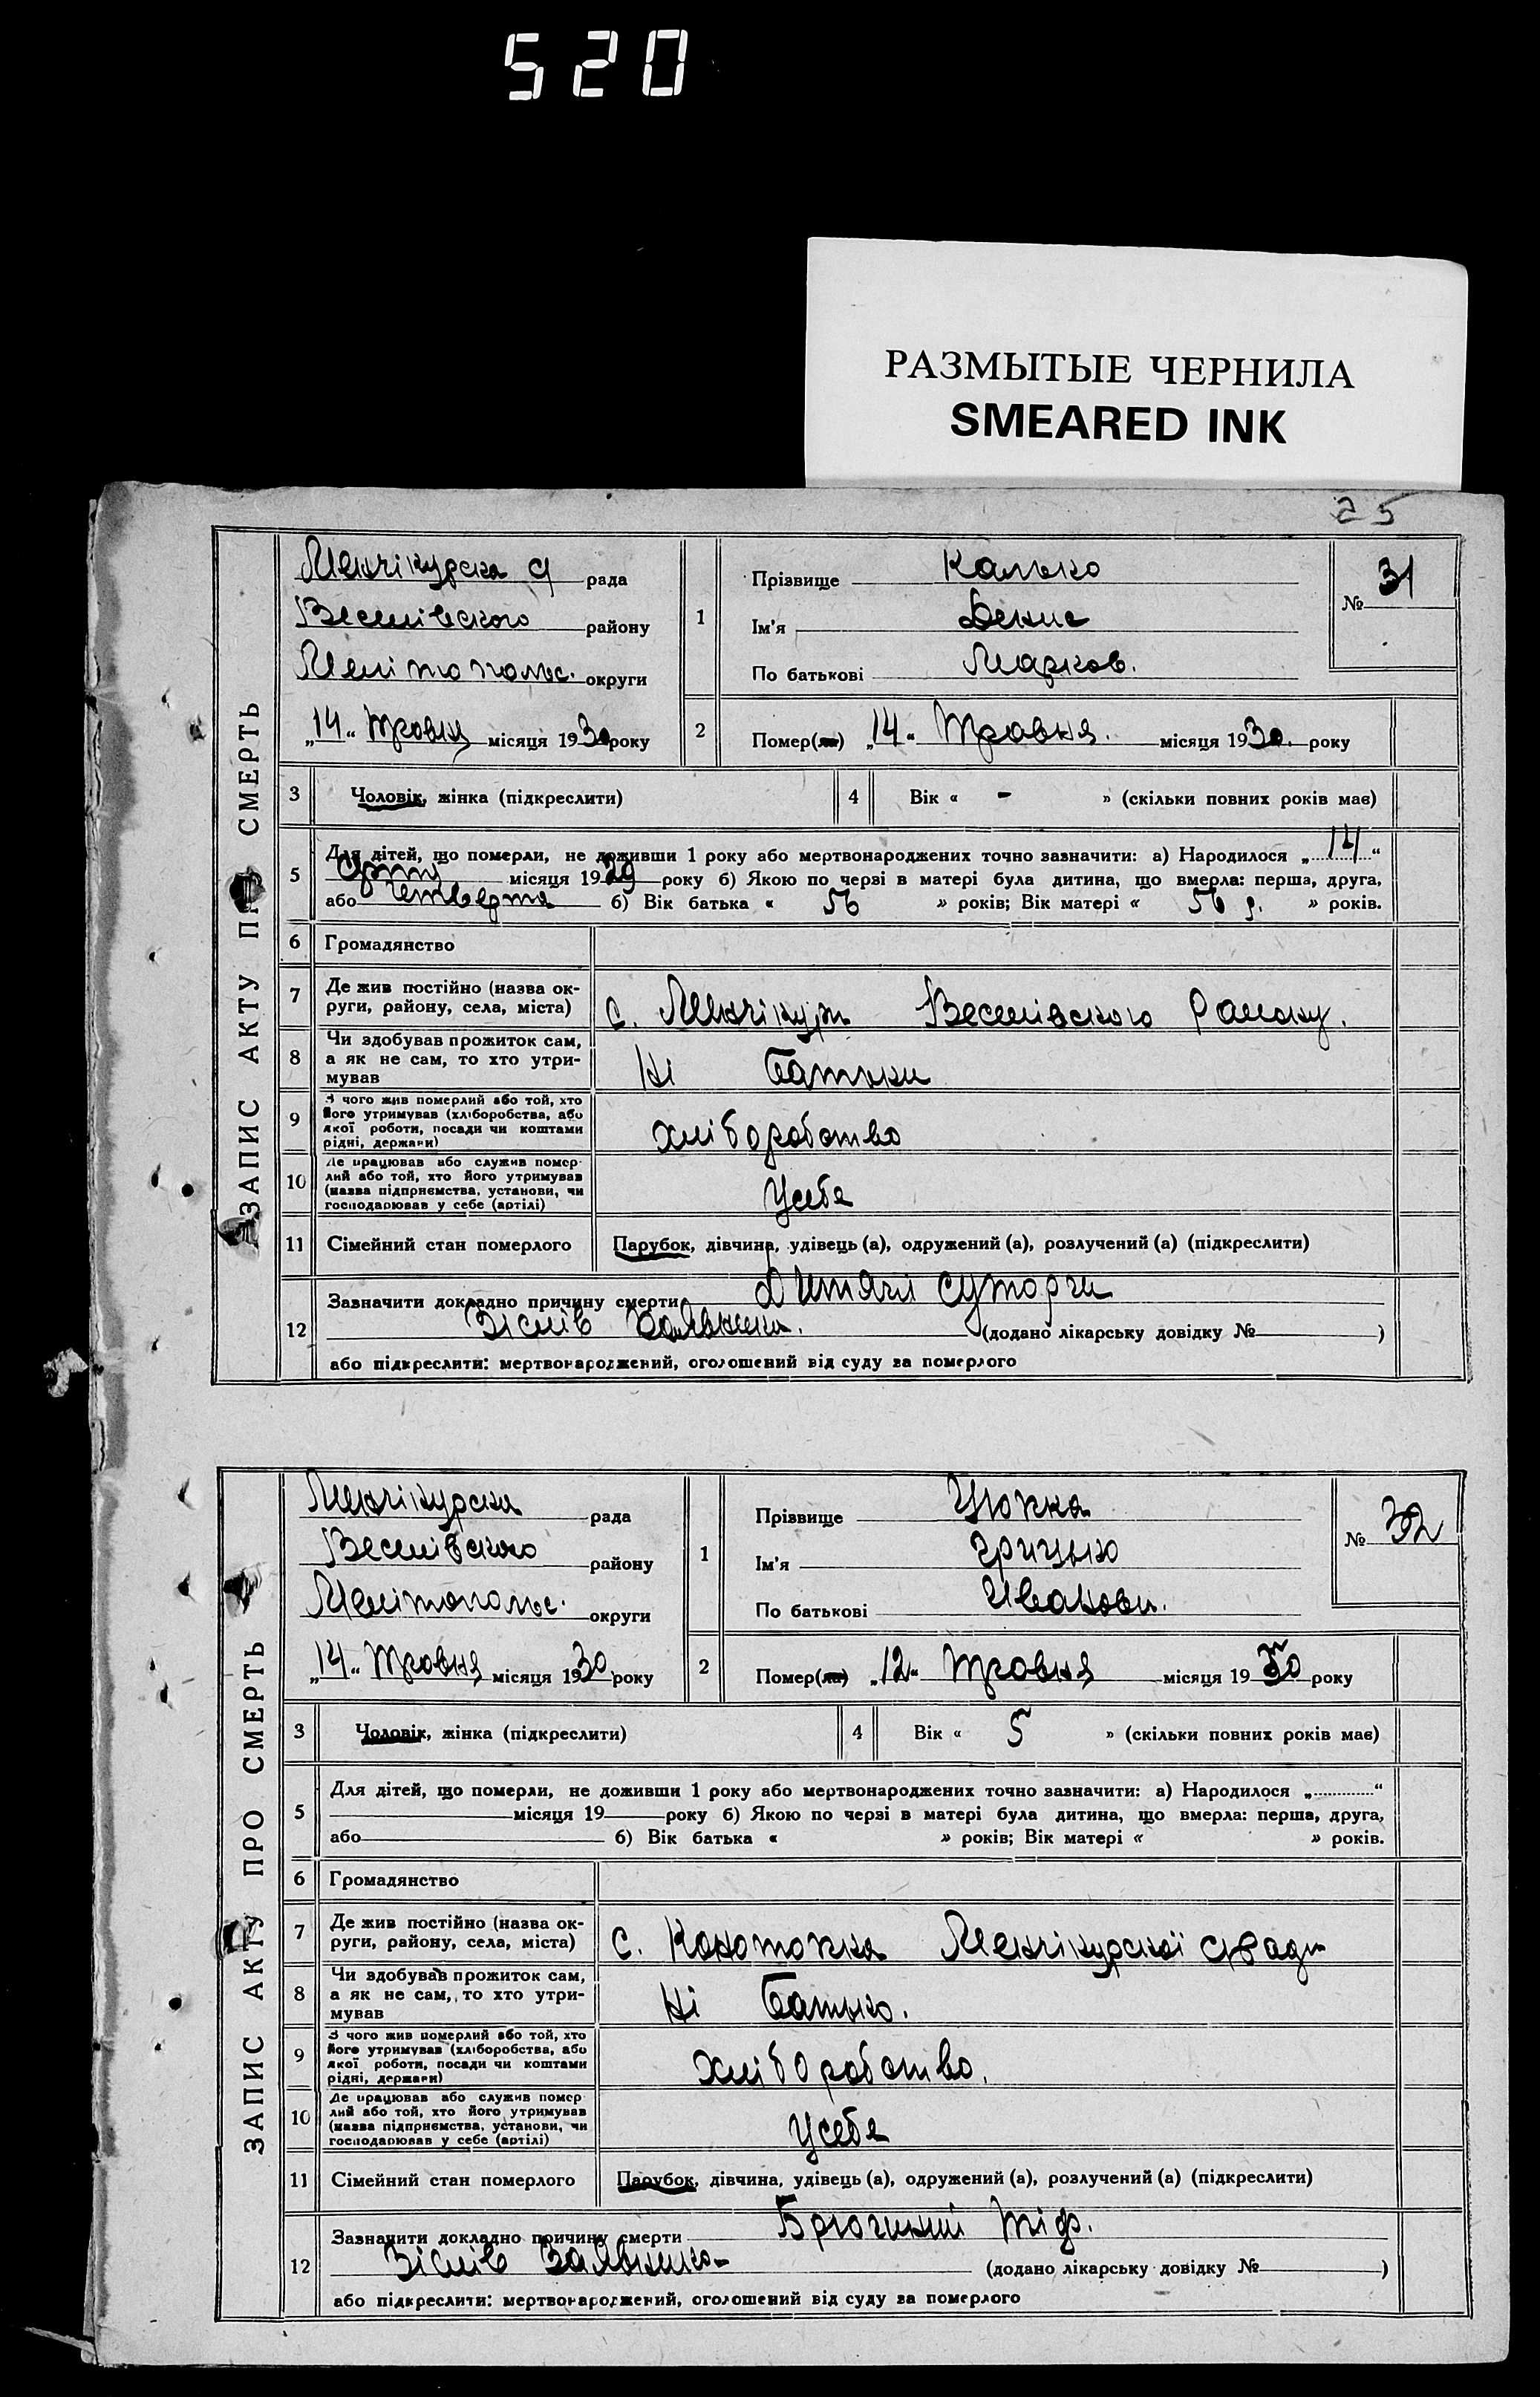 520
РАЗМЫТЫЕ ЧЕРНИЛА
SMEARED INK
25
ЗАПИС АКТУ ПРО СМЕРТЬ
Менчікурська рада
Веселівського району
Мелітопольс. округи
„14“ Травня місяця 1930 року
1
Прізвище Калько
Ім'я Денис
По батькові Марков.
№ 31
2
Помер(ла) „14“ Травня. місяця 1930. року
3 Чоловік, жінка (підкреслити)
4 Вік « - » (скільки повних років має)
5 Для дітей, що померли, не доживши 1 року або мертвонароджених точно зазначити: а) Народилося „14“
місяця 1929 року б) Якою по черзі в матері була дитина, що вмерла: перша, друга,
або четверта б) Вік батька « 56 » років; Вік матері « 56 р. » років.
6 Громадянство
7 Де жив постійно (назва округи, району, села, міста) с. Менчікури Веселівського Району.
8 Чи здобував прожиток сам, а як не сам, то хто утримував Ні Батьки
9 З чого жив померлий або той, хто його утримував (хліборобства, або якої роботи, посади чи коштами рідні, держави) хліборобство
10 Де працював або служив померлий або той, хто його утримував (назва підприємства, установи, чи господарював у себе (артілі) Усебе
11 Сімейний стан померлого Парубок, дівчина, удівець (а), одружений (а), розлучений (а) (підкреслити)
12 Зазначити докладно причину смерти Дитячі суторги
Зіслів Заявника. (додано лікарську довідку № )
або підкреслити: мертвонароджений, оголошений від суду за померлого
ЗАПИС АКТУ ПРО СМЕРТЬ
Менчікурська рада
Веселівського району
Мелітопольс. округи
„14“ Травня місяця 1930 року
1
Прізвище Цюпка
Ім'я Грицько
По батькові Иванови.
№ 32
2
Помер(ла) „12“ Травня місяця 1930 року
3 Чоловік, жінка (підкреслити)
4 Вік « 5 » (скільки повних років має)
5 Для дітей, що померли, не доживши 1 року або мертвонароджених точно зазначити: а) Народилося „ “
місяця 19 року б) Якою по черзі в матері була дитина, що вмерла: перша, друга,
або б) Вік батька « » років; Вік матері « » років.
6 Громадянство
7 Де жив постійно (назва округи, району, села, міста) с. Конотопка Менчікурскої с/ради
8 Чи здобував прожиток сам, а як не сам, то хто утримував Ні Батько.
9 З чого жив померлий або той, хто його утримував (хліборобства, або якої роботи, посади чи коштами рідні, держави) хліборобство.
10 Де працював або служив померлий або той, хто його утримував (назва підприємства, установи, чи господарював у себе (артілі) Усебе
11 Сімейний стан померлого Парубок, дівчина, удівець (а), одружений (а), розлучений (а) (підкреслити)
12 Зазначити докладно причину смерти Брюшний тіф.
Зіслів Заявника (додано лікарську довідку № )
або підкреслити: мертвонароджений, оголошений від суду за померлого